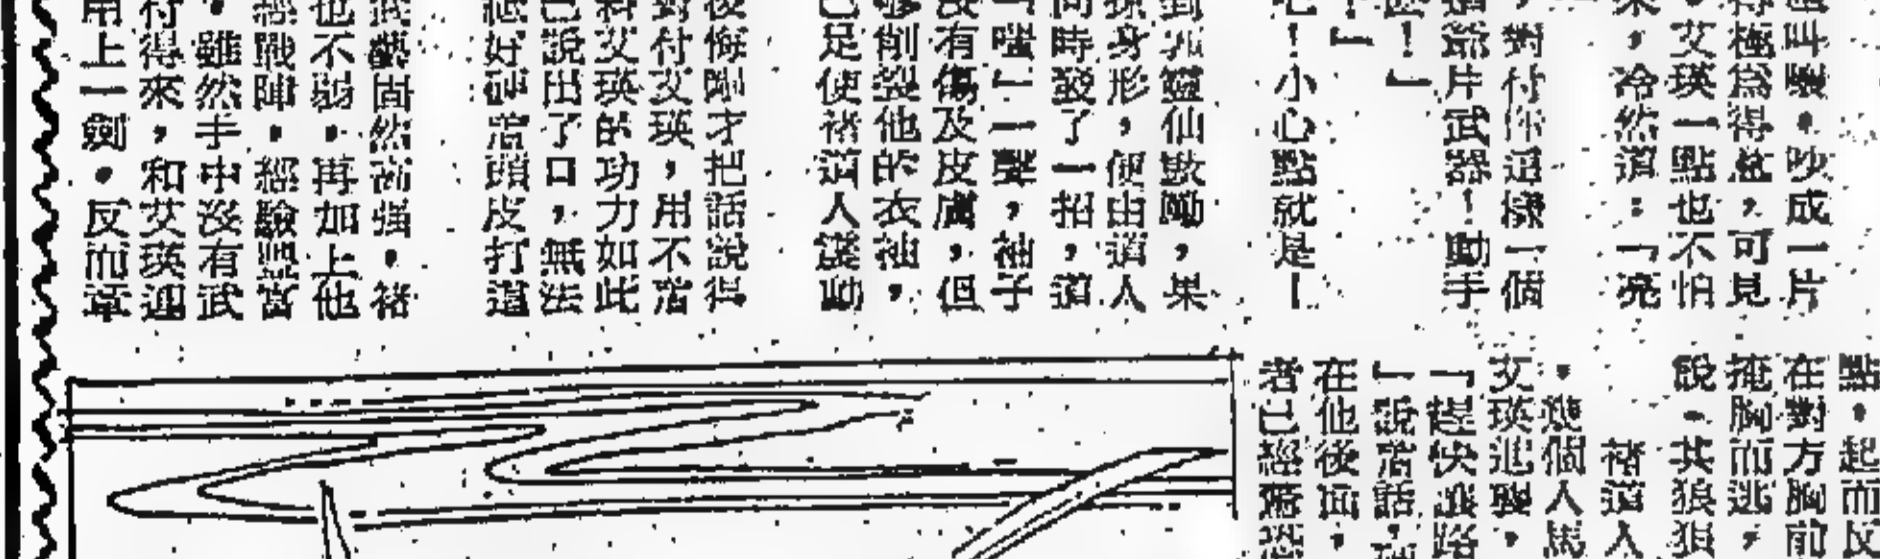 叫嚷,吹成一片
得極為得意,可見
,艾瑛一點也不怕
來,冷然道:「亮
,對付你這樣一個
道爺片武器!動手
!」
!」
吧!小心點就是!
到孔靈仙數嘞,果
身形,便由道人
同時發了一招,道
「嗤」一聲,袖子
沒有傷及皮膚,但
夠削裂他的衣袖,
已足使褚道人震動
後悔剛才把話說得
對付艾瑛,用不着
料艾瑛的功力如此
已說出了口,無法
好硬着頭皮打這
武藝固然高強,褚
也不弱,再加上他
經戰陣,經驗豐富
,雖然手中沒有武
付得來,和艾瑛迎
用上一劍,反而章
點,起而反
在對方胸前
掩胸而逃,
說,其狼狽
褚道人
,幾個人馬
艾瑛追趕,
「趕快讓路
」說着話,
在他後面,
者已經